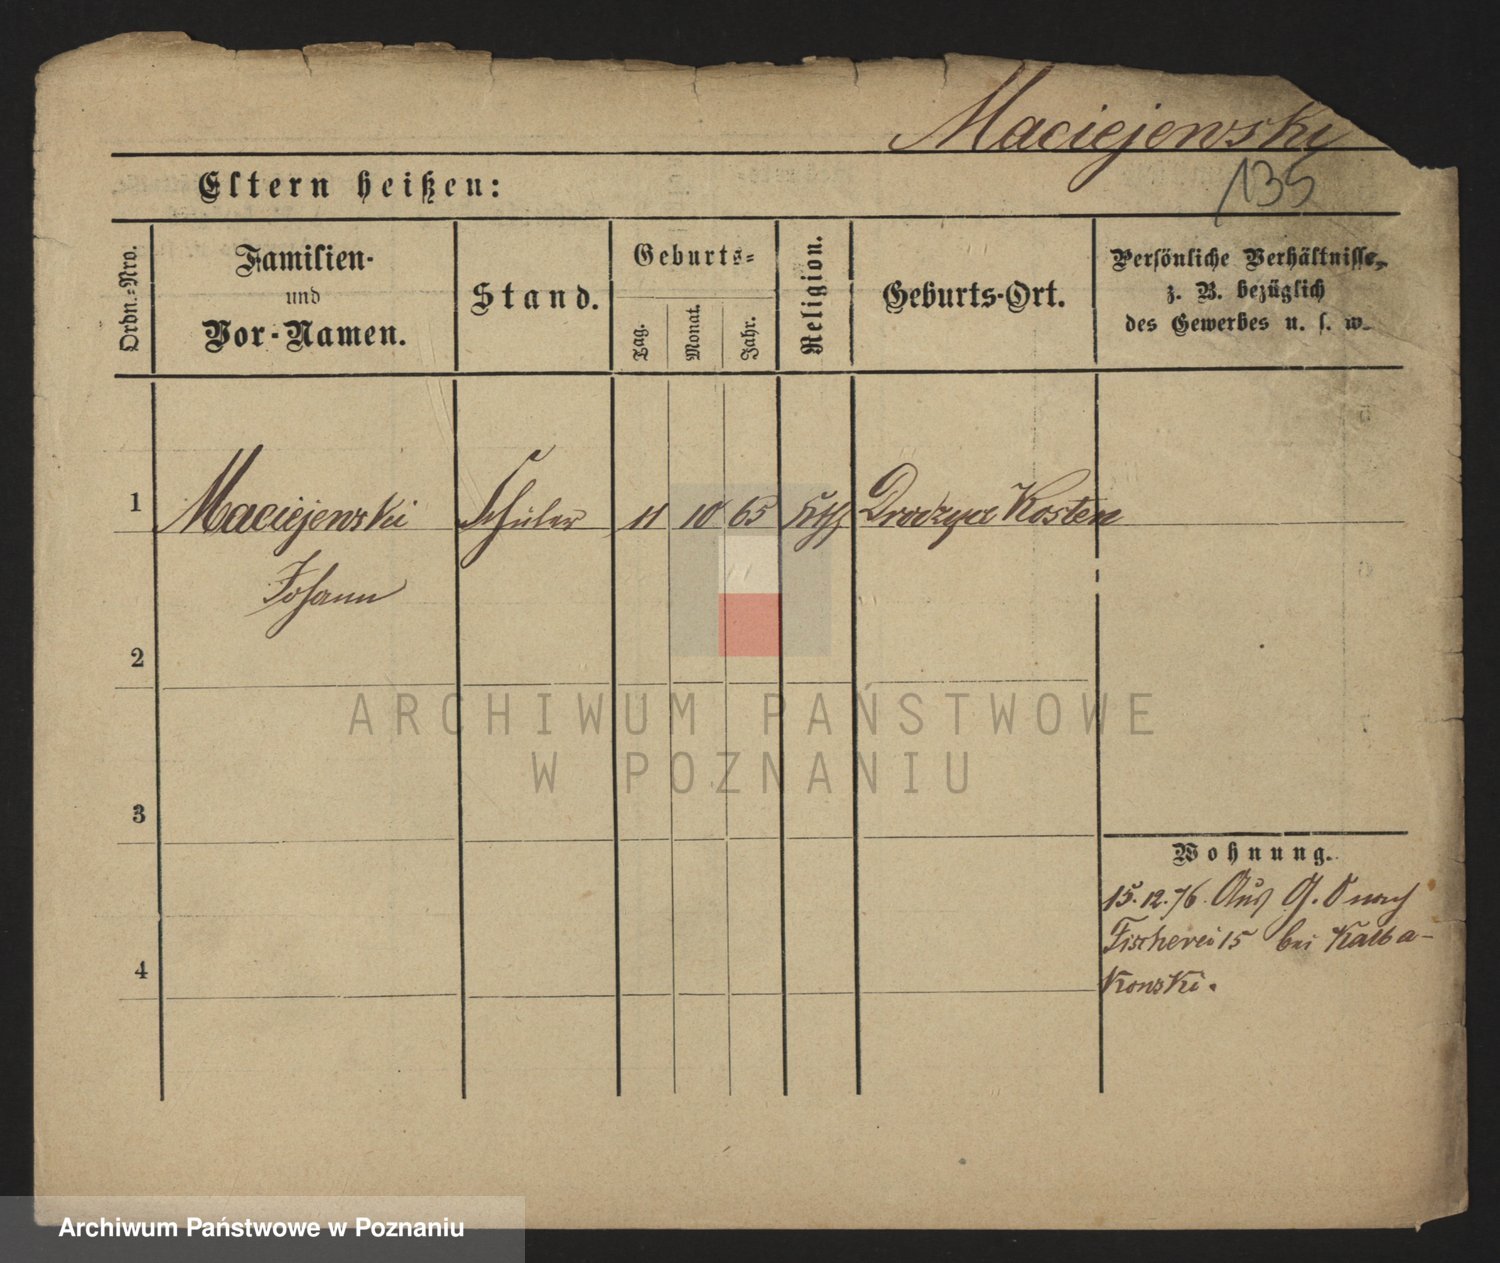 Maciejewski
135
Eltern heißen:
Ordn.-Nro.
Familien-
und
Vor-Namen.
Stand.
Geburts-
Tag.
Monat.
Jahr.
Religion.
Geburts-Ort.
Persönliche Verhältnisse,
z. B. bezüglich
des Gewerbes u. s. w.
1 Maciejewski Schüler 11 10 65 Kth Drodzyn Kosten
Johann
2
3
4
ARCHIWUM PAŃSTWOWE
W POZNANIU
Wohnung.
15.12.76. Aus G. nach
Fischerei 15 bei Kalba-
Konski.
Archiwum Państwowe w Poznaniu